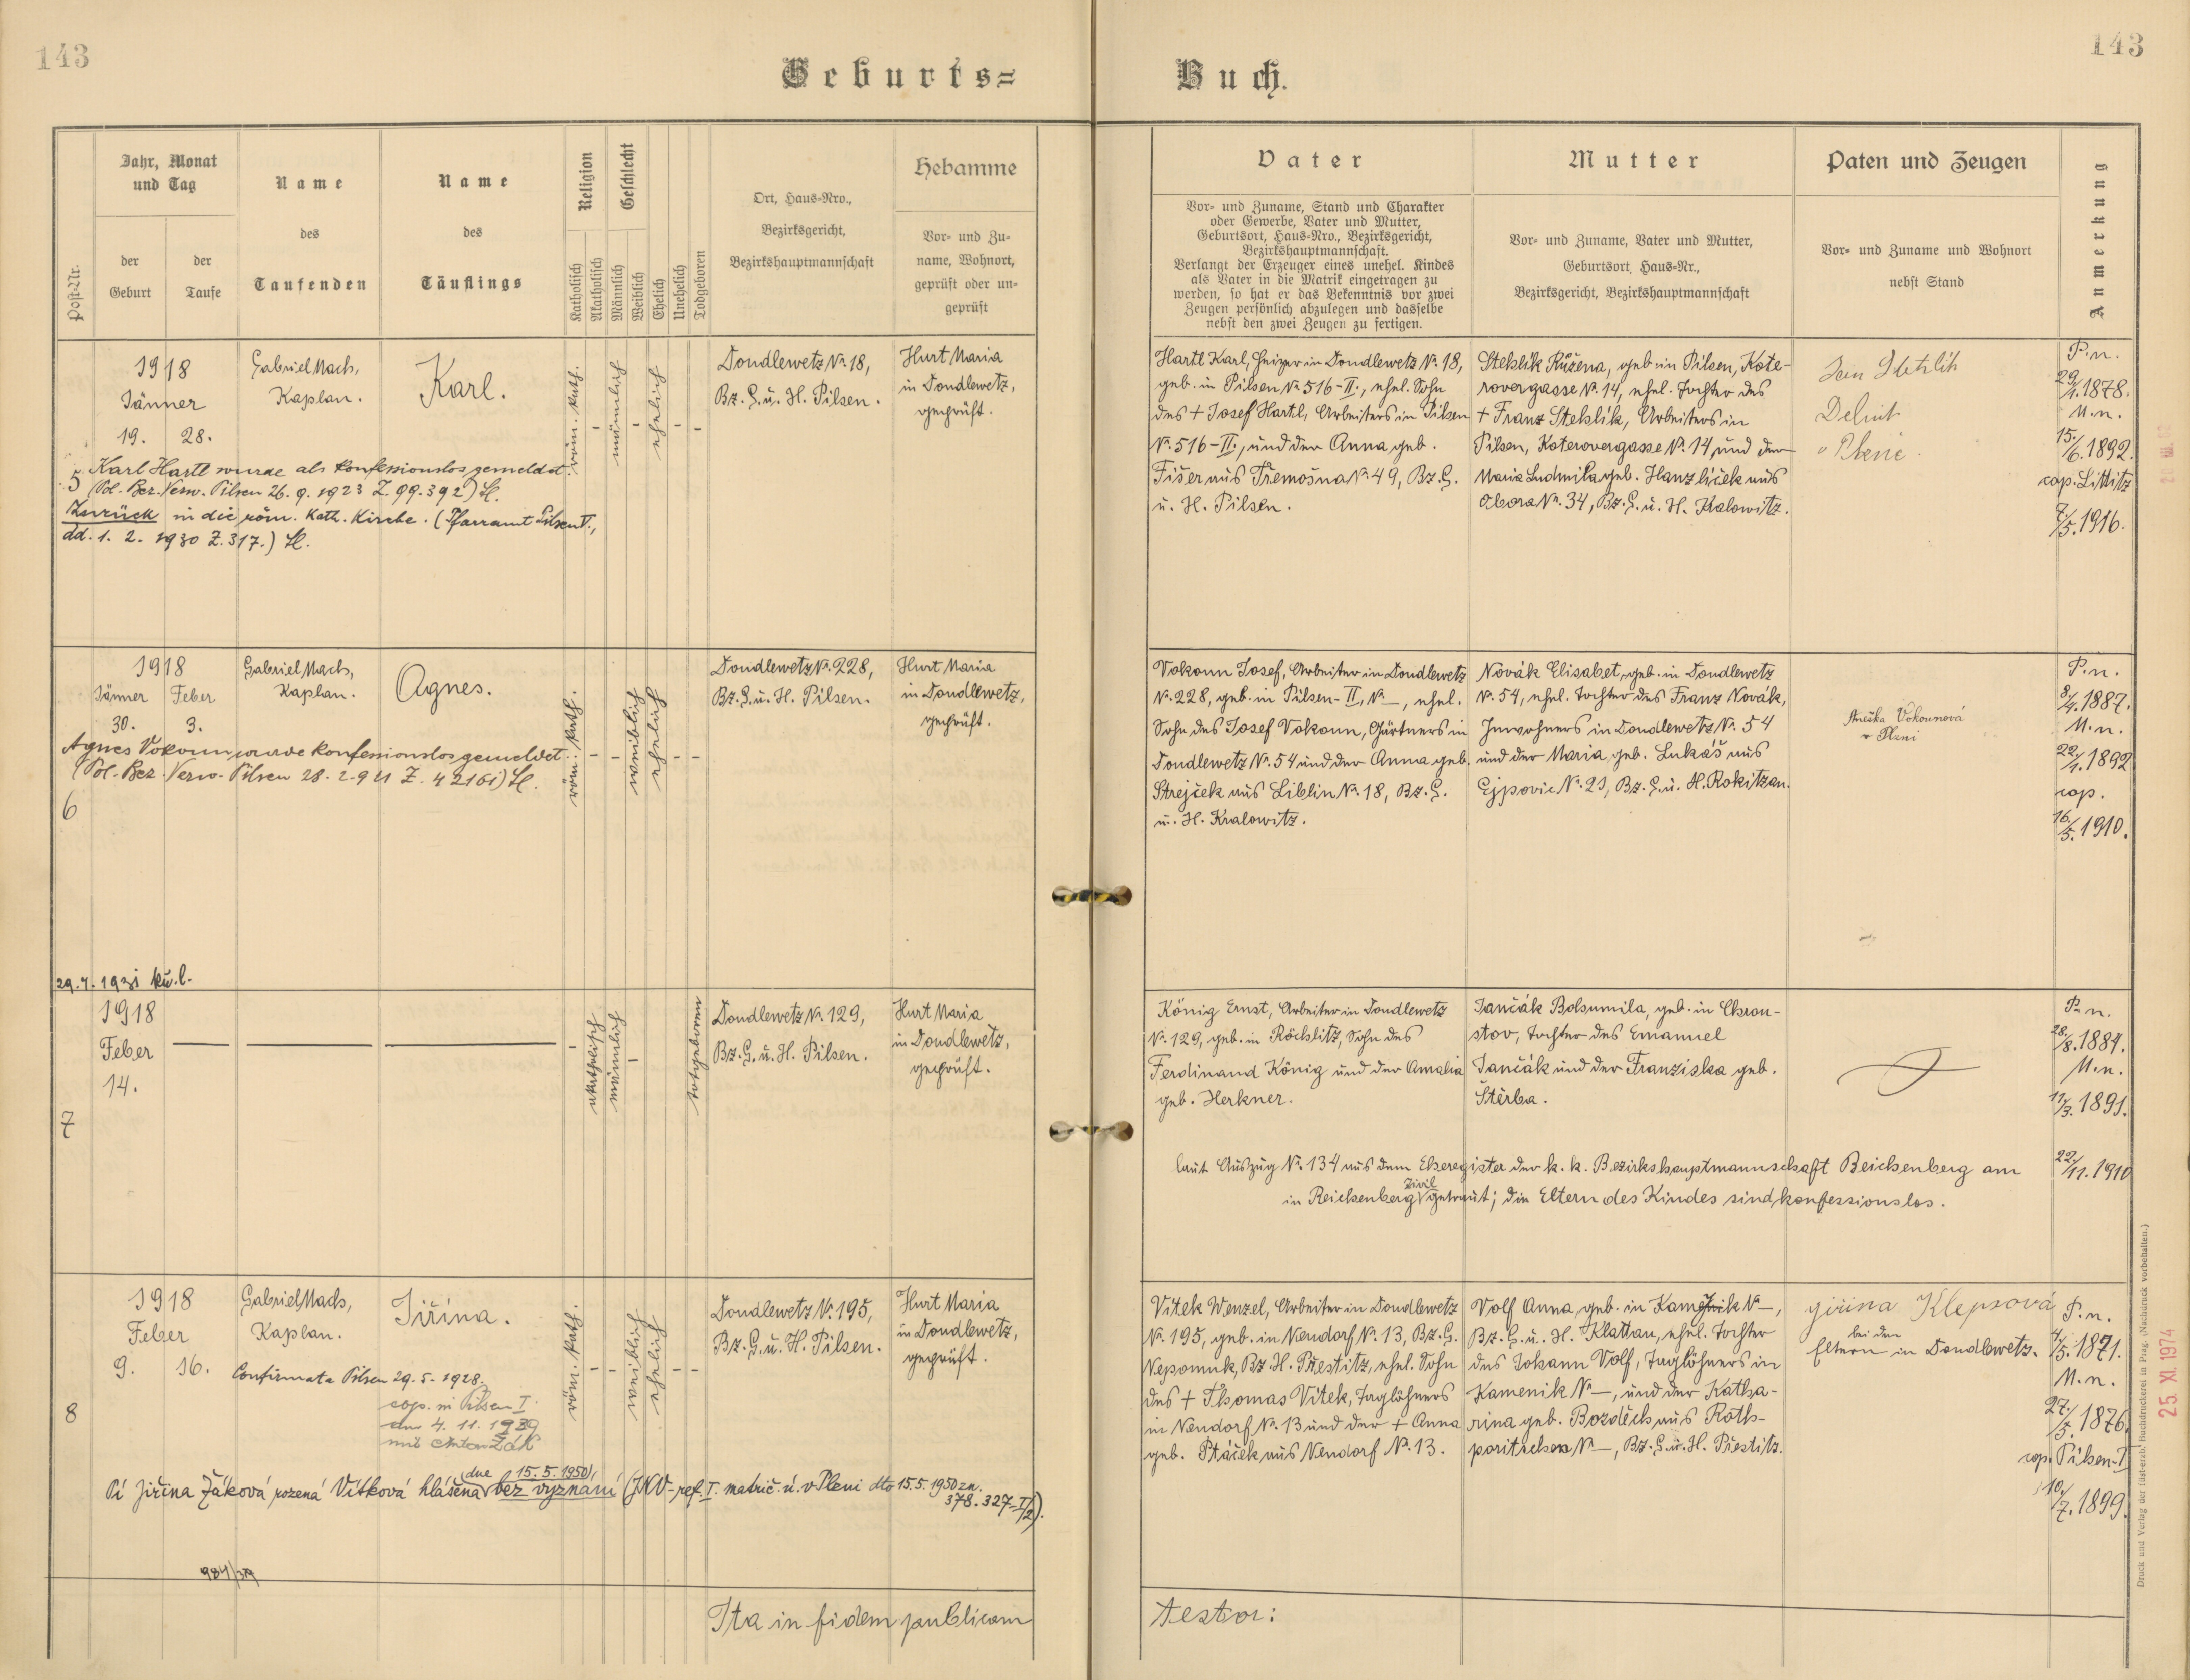 143
143
Geburts=
Buch.
Post-Nr.
Jahr, Monat
und Tag
der
Geburt
der
Taufe
Name
des
Taufenden
Name
des
Täuflings
Religion
Katholisch
Akatholisch
Geschlecht
Männlich
Weiblich
Ehelich
Unehelich
Todgeboren
Ort, Haus-Nro.,
Bezirksgericht,
Bezirkshauptmannschaft
Hebamme
Vor- und Zu-
name, Wohnort,
geprüft oder un-
geprüft
Vater
Vor- und Zuname, Stand und Charakter
oder Gewerbe, Vater und Mutter,
Geburtsort, Haus-Nro., Bezirksgericht,
Bezirkshauptmannschaft.
Verlangt der Erzeuger eines unehel. Kindes
als Vater in die Matrik eingetragen zu
werden, so hat er das Bekenntnis vor zwei
Zeugen persönlich abzulegen und dasselbe
nebst den zwei Zeugen zu fertigen.
Mutter
Vor- und Zuname, Vater und Mutter,
Geburtsort, Haus-Nr.,
Bezirksgericht, Bezirkshauptmannschaft
Paten und Zeugen
Vor- und Zuname und Wohnort
nebst Stand
Anmerkung
5
1918
Jänner
19. 28.
Gabriel Mach,
Kaplan.
Karl.
röm. kath.
-
männlich
-
ehelich
-
-
Dondlewetz N° 18,
Bz. G. u. H. Pilsen.
Hurt Maria
in Dondlewetz,
geprüft.
Karl Hartl wurde als konfessionslos gemeldet.
(Pol. Bez. Verw. Pilsen 26. 9. 1923 Z. 99.392)
Zurück in die röm. Kath. Kirche. (Pfarramt Pilsen V.,
dd. 1. 2. 1930 Z. 317.)
Hartl Karl, Heizer in Dondlewetz N° 18,
geb. in Pilsen N° 516-II., ehel. Sohn
des + Josef Hartl, Arbeiters in Pilsen
N° 516-II., und der Anna geb.
Fišer aus Třemošna N° 49, Bz. G.
u. H. Pilsen.
Stehlik Růžena, geb. in Pilsen, Kote-
rovergasse N° 14, ehel. Tochter des
+ Franz Stehlik, Arbeiters in
Pilsen, Koterovergasse N° 14 und der
Maria Ludmila geb. Hanzliček aus
Obora N° 34, Bz. G. u. H. Kralowitz.
P. n.
29/1. 1878.
M. n.
15/6. 1892.
cop. Littitz
7/5. 1916.
6
1918
Jänner Feber
30. 3.
Gabriel Mach,
Kaplan.
Agnes.
röm. kath.
-
-
weiblich
ehelich
-
-
Dondlewetz N° 228,
Bz. G. u. H. Pilsen.
Hurt Maria
in Dondlewetz,
geprüft.
Agnes Vokoun wurde konfessionslos gemeldet.
(Pol. Bez. Verw. Pilsen 28. 2. 921 Z. 42161)
Vokoun Josef, Arbeiter in Dondlewetz
N° 228, geb. in Pilsen-II, N° —, ehel.
Sohn des Josef Vokoun, Gärtners in
Dondlewetz N° 54 und der Anna geb.
Strejček aus Liblin N° 18, Bz. G.
u. H. Kralowitz.
Novák Elisabet, geb. in Dondlewetz
N° 54, ehel. Tochter des Franz Novák,
Inwohners in Dondlewetz N° 54
und der Maria, geb. Lukaš aus
Ejpovic N° 21, Bz. G. u. H. Rokitzan.
Anežka Vokounová
v Plzni
P. n.
8/4. 1887.
M. n.
22/1. 1892
cop.
16/5. 1910.
7
1918
Feber
14.
-
akatholisch
männlich
-
totgeboren
Dondlewetz N° 129,
Bz. G. u. H. Pilsen.
Hurt Maria
in Dondlewetz,
geprüft.
König Ernst, Arbeiter in Dondlewetz
N° 129, geb. in Röchlitz, Sohn des
Ferdinand König und der Amalia
geb. Herkner.
Jančák Bohumila, geb. in Chrou-
stov, Tochter des Emanuel
Jančák und der Franziska geb.
Štěrba.
P. n.
28/8. 1884.
M. n.
11/3. 1891.
laut Auszug N° 134 aus dem Eheregister der k. k. Bezirkshauptmannschaft Reichenberg am 22/11. 1910
in Reichenberg zivil getraut; die Eltern des Kindes sind konfessionslos.
8
1918
Feber
9. 16.
Gabriel Mach,
Kaplan.
Jiřina.
röm. kath.
-
-
weiblich
ehelich
-
-
Dondlewetz N° 195,
Bz. G. u. H. Pilsen.
Hurt Maria
in Dondlewetz,
geprüft.
Confirmata Pilsen 29. 5. 1928.
cop. in Pilsen I.
am 4. 11. 1939
mit Anton Žák
Pí Jiřina Žáková rozená Vítková hlášena dne 15. 5. 1950, bez vyznání (JNV - ref. I. matrič. ú. v Plzni dto 15. 5. 1950 zn.
378.327-I/2).
Vitek Wenzel, Arbeiter in Dondlewetz
N° 195, geb. in Neudorf N° 13, Bz. G.
Nepomuk, Bz. H. Přestitz, ehel. Sohn
des + Thomas Vitek, Taglöhners
in Neudorf N° 13 und der + Anna
geb. Ptáček aus Neudorf N° 13.
Volf Anna, geb. in Kamenik N° —,
Bz. G. u. H. Klattau, ehel. Tochter
des Johann Volf, Taglöhners in
Kamenik N° —, und der Katha-
rina geb. Bozděch aus Roth-
poritschen N° —, Bz. G. u. H. Přestitz.
Jiřina Klepsová
bei den
Eltern in Dondlewetz.
P. n.
4/5. 1871.
M. n.
27/5. 1876
cop. Pilsen-I
10/7. 1899.
Ita in fidem publicam
testor:
Druck und Verlag der fürst-erzb. Buchdruckerei in Prag. (Nachdruck vorbehalten.)
25. XI. 1974